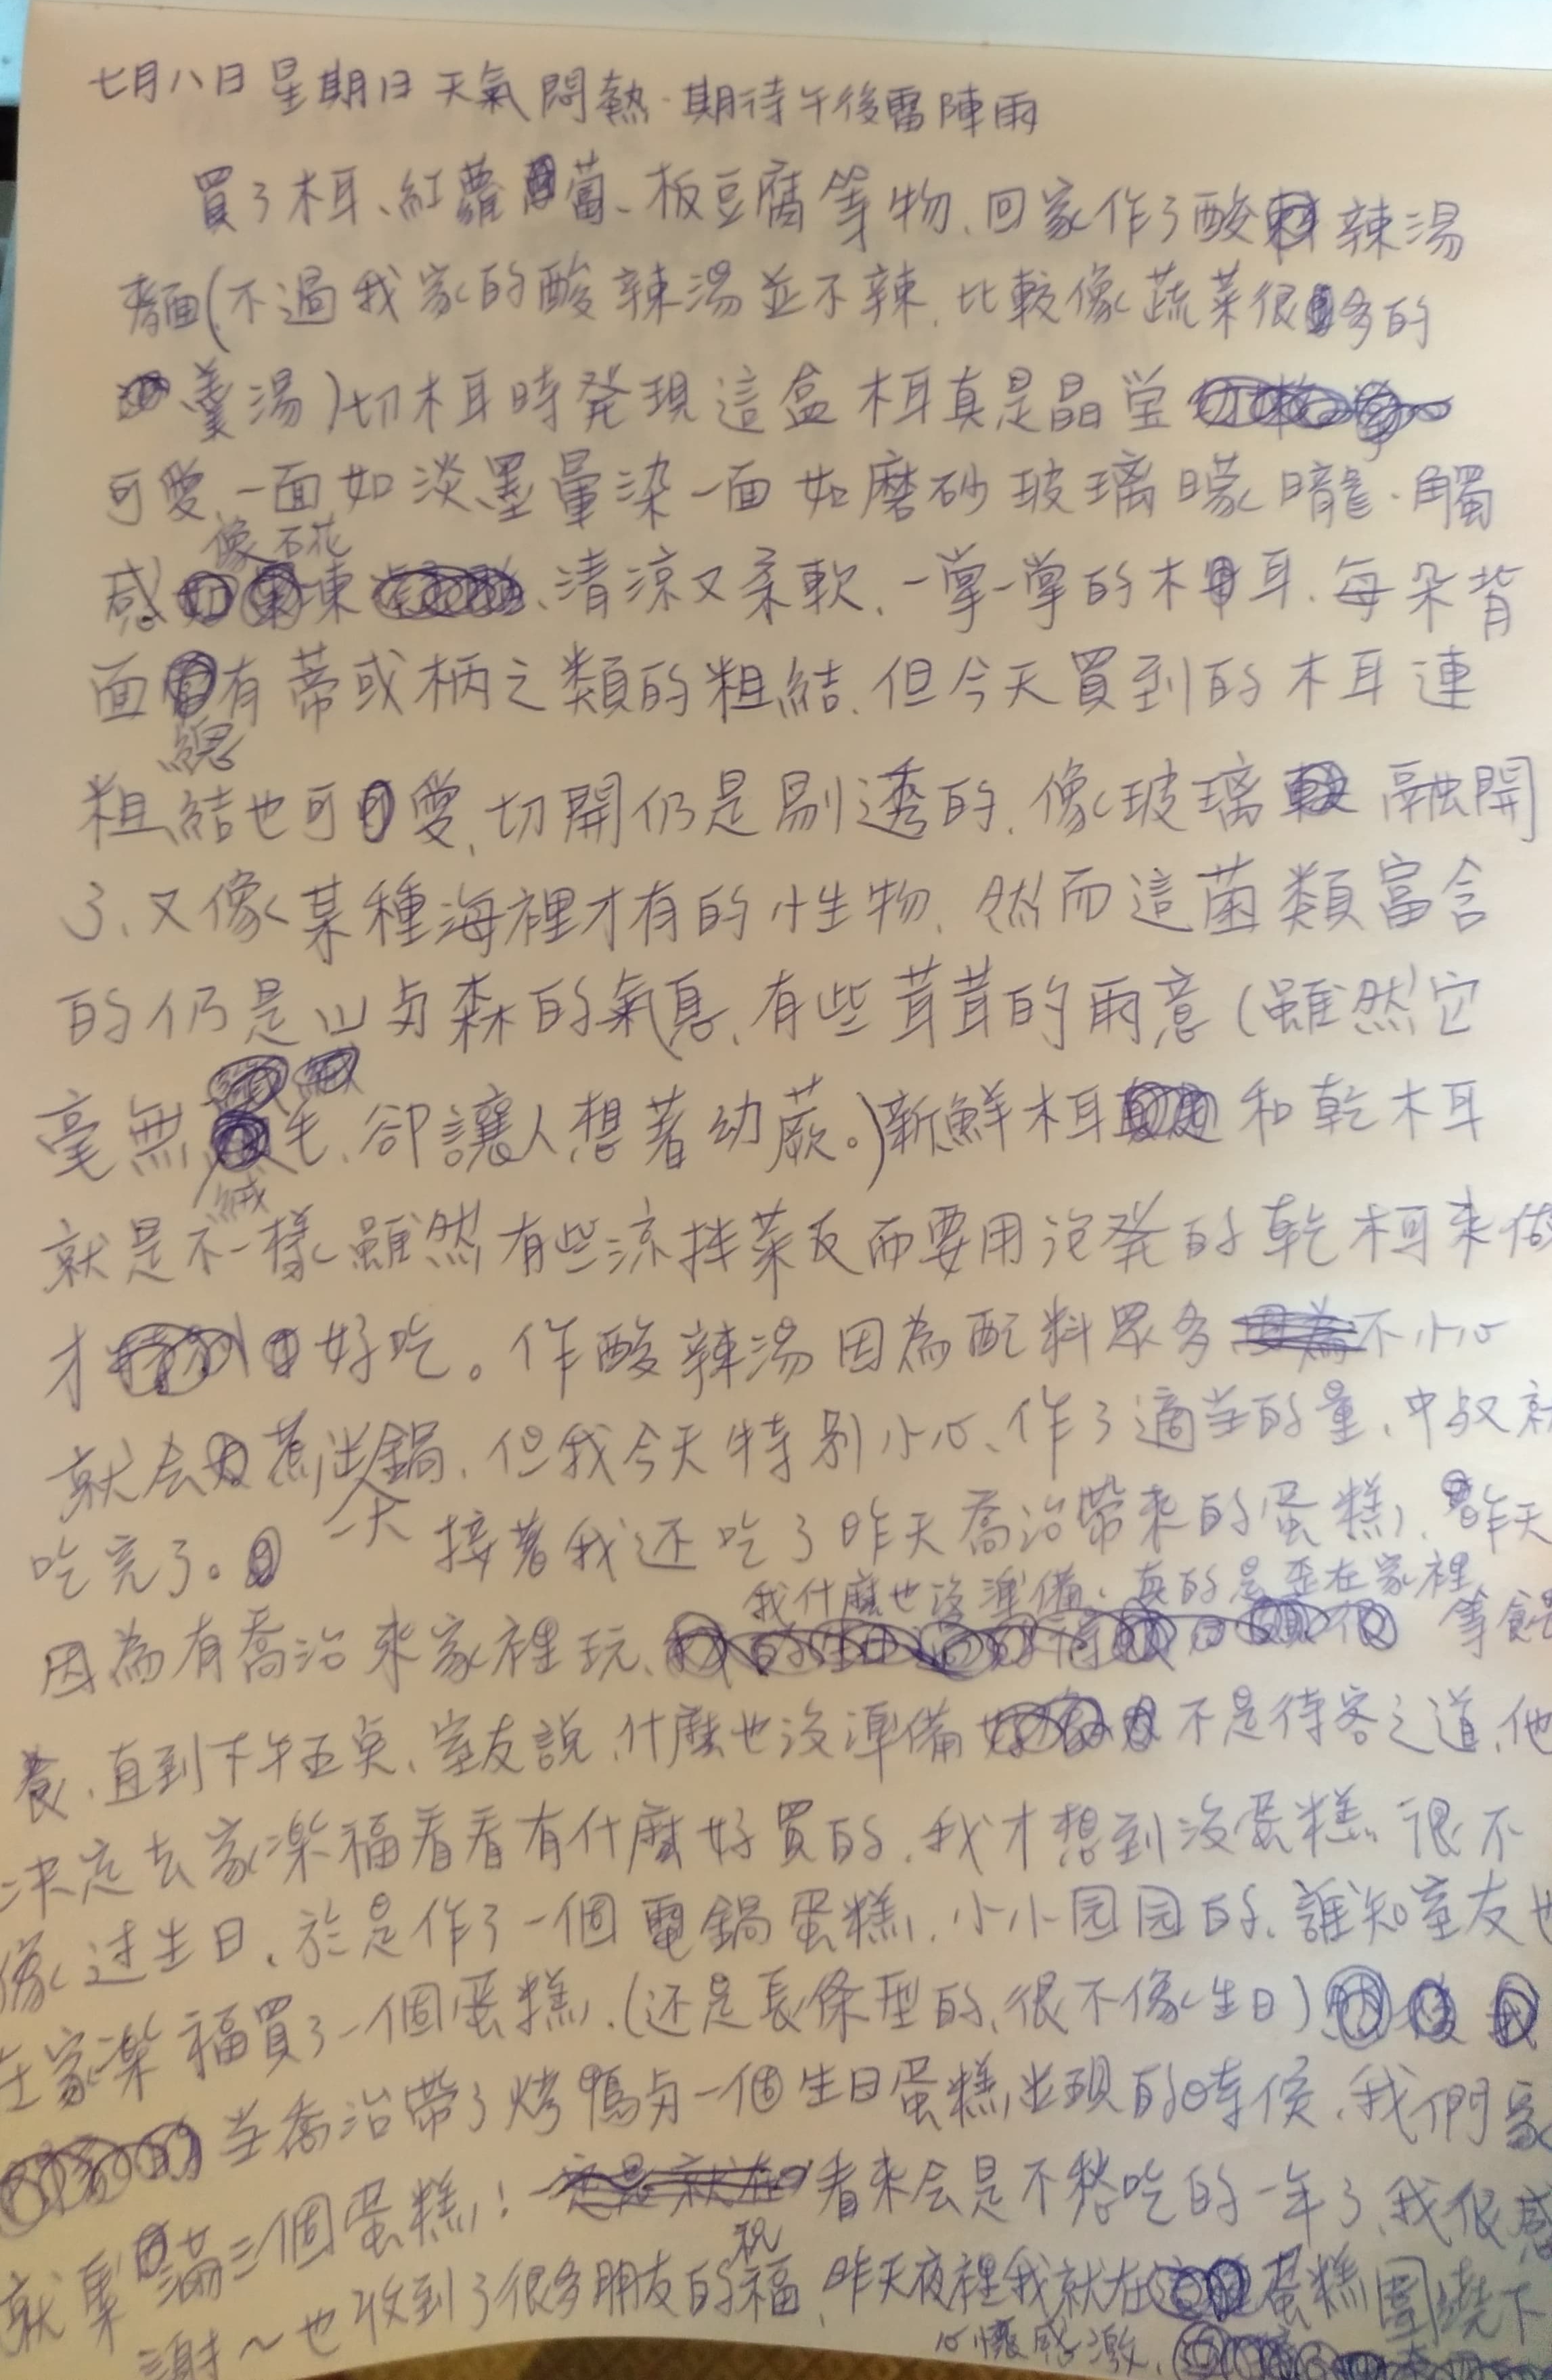 七月八日星期日天氣悶熱.期待午後雷陣雨
買了木耳、紅蘿蔔、板豆腐等物、回家作了酸辣湯
麵(不過我家的酸辣湯並不辣、比較像蔬菜很多的
羹湯)切木耳時発現這盒木耳真是晶莹
可愛、一面如淡墨暈染一面如磨砂玻璃曚曨.觸
像石花
感凍、清涼又柔軟、一掌一掌的木耳、每朵背
面有蒂或柄之類的粗結、但今天買到的木耳連
總
粗結也可愛、切開仍是剔透的、像玻璃融開
了、又像某種海裡才有的生物、然而這菌類富含
的仍是山与森的氣息、有些茸茸的雨意(雖然它
毫無毛、卻讓人想著幼蕨。)新鮮木耳和乾木耳
絨
就是不一樣雖然有些涼拌菜反而要用泡発的乾木耳來做
才好吃。作酸辣湯因為配料眾多不小心
就会煮出一大鍋、但我今天特別小心、作了適当的量、中午就
吃完了。接著我还吃了昨天喬治帶來的蛋糕、昨天
我什麼也沒準備、真的是歪在家裡
因為有喬治來家裡玩、等餵
養、直到下午五点、室友說、什麼也沒準備不是待客之道、他
決定去家楽福看看有什麼好買的、我才想到沒蛋糕很不
像过生日、於是作了一個電鍋蛋糕、小小园园的、誰知室友也
在家楽福買了一個蛋糕、(还是長條型的、很不像生日)
当喬治帶了烤鴨与一個生日蛋糕出現的時候、我們家
就集滿三個蛋糕!看來会是不愁吃的一年了、我很感
祝
謝~也收到了很多朋友的福、昨天夜裡我就在蛋糕圍繞下
心懷感激、